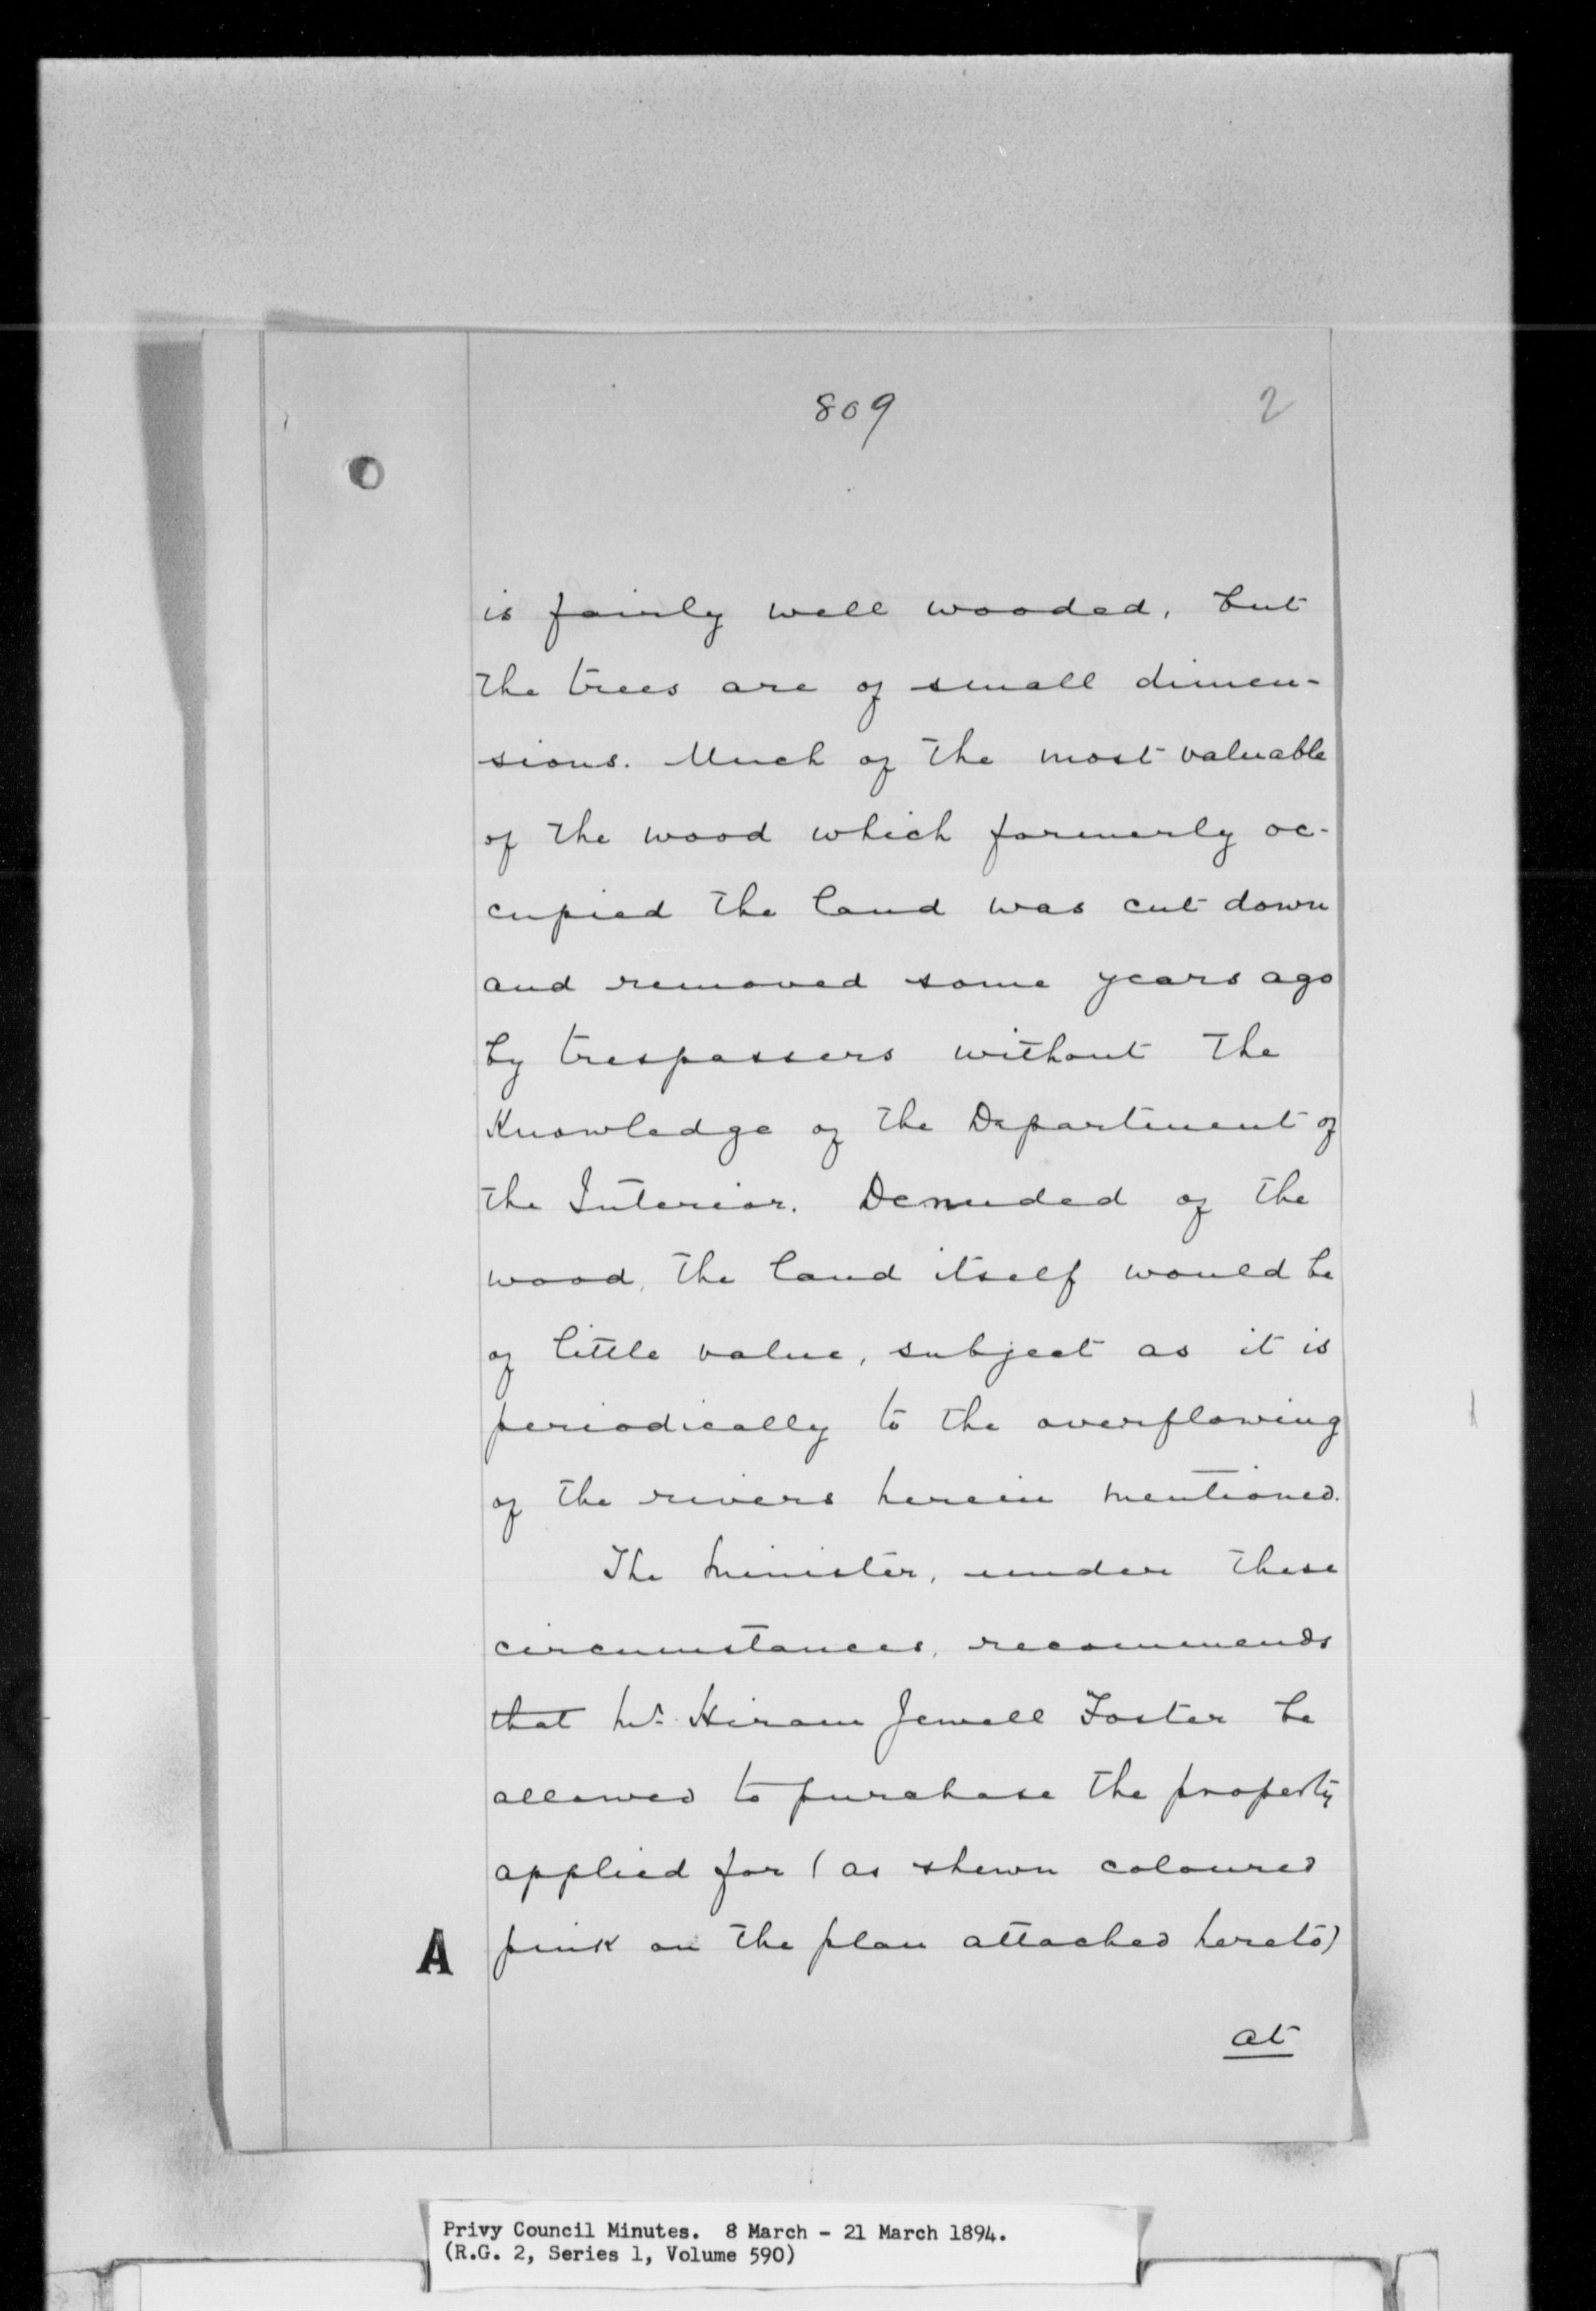 809 2
is fairly well wooded, but
the trees are of small dimen-
sions. Much of the most valuable
of the wood which formerly oc-
cupied the land was cut down
and removed some years ago
by trespassers without the
Knowledge of the Department of
the Interior. Denuded of the
wood, the land itself would be
of little value, subject as it is
periodically to the overflowing
of the rivers herein mentioned.
The Minister, under these
circumstances, recommends
that Mr. Hiram Jewell Foster be
allowed to purchase the property
applied for (as shewn coloured
A pink on the plan attached hereto)
at
Privy Council Minutes. 8 March - 21 March 1894.
(R.G. 2, Series 1, Volume 590)